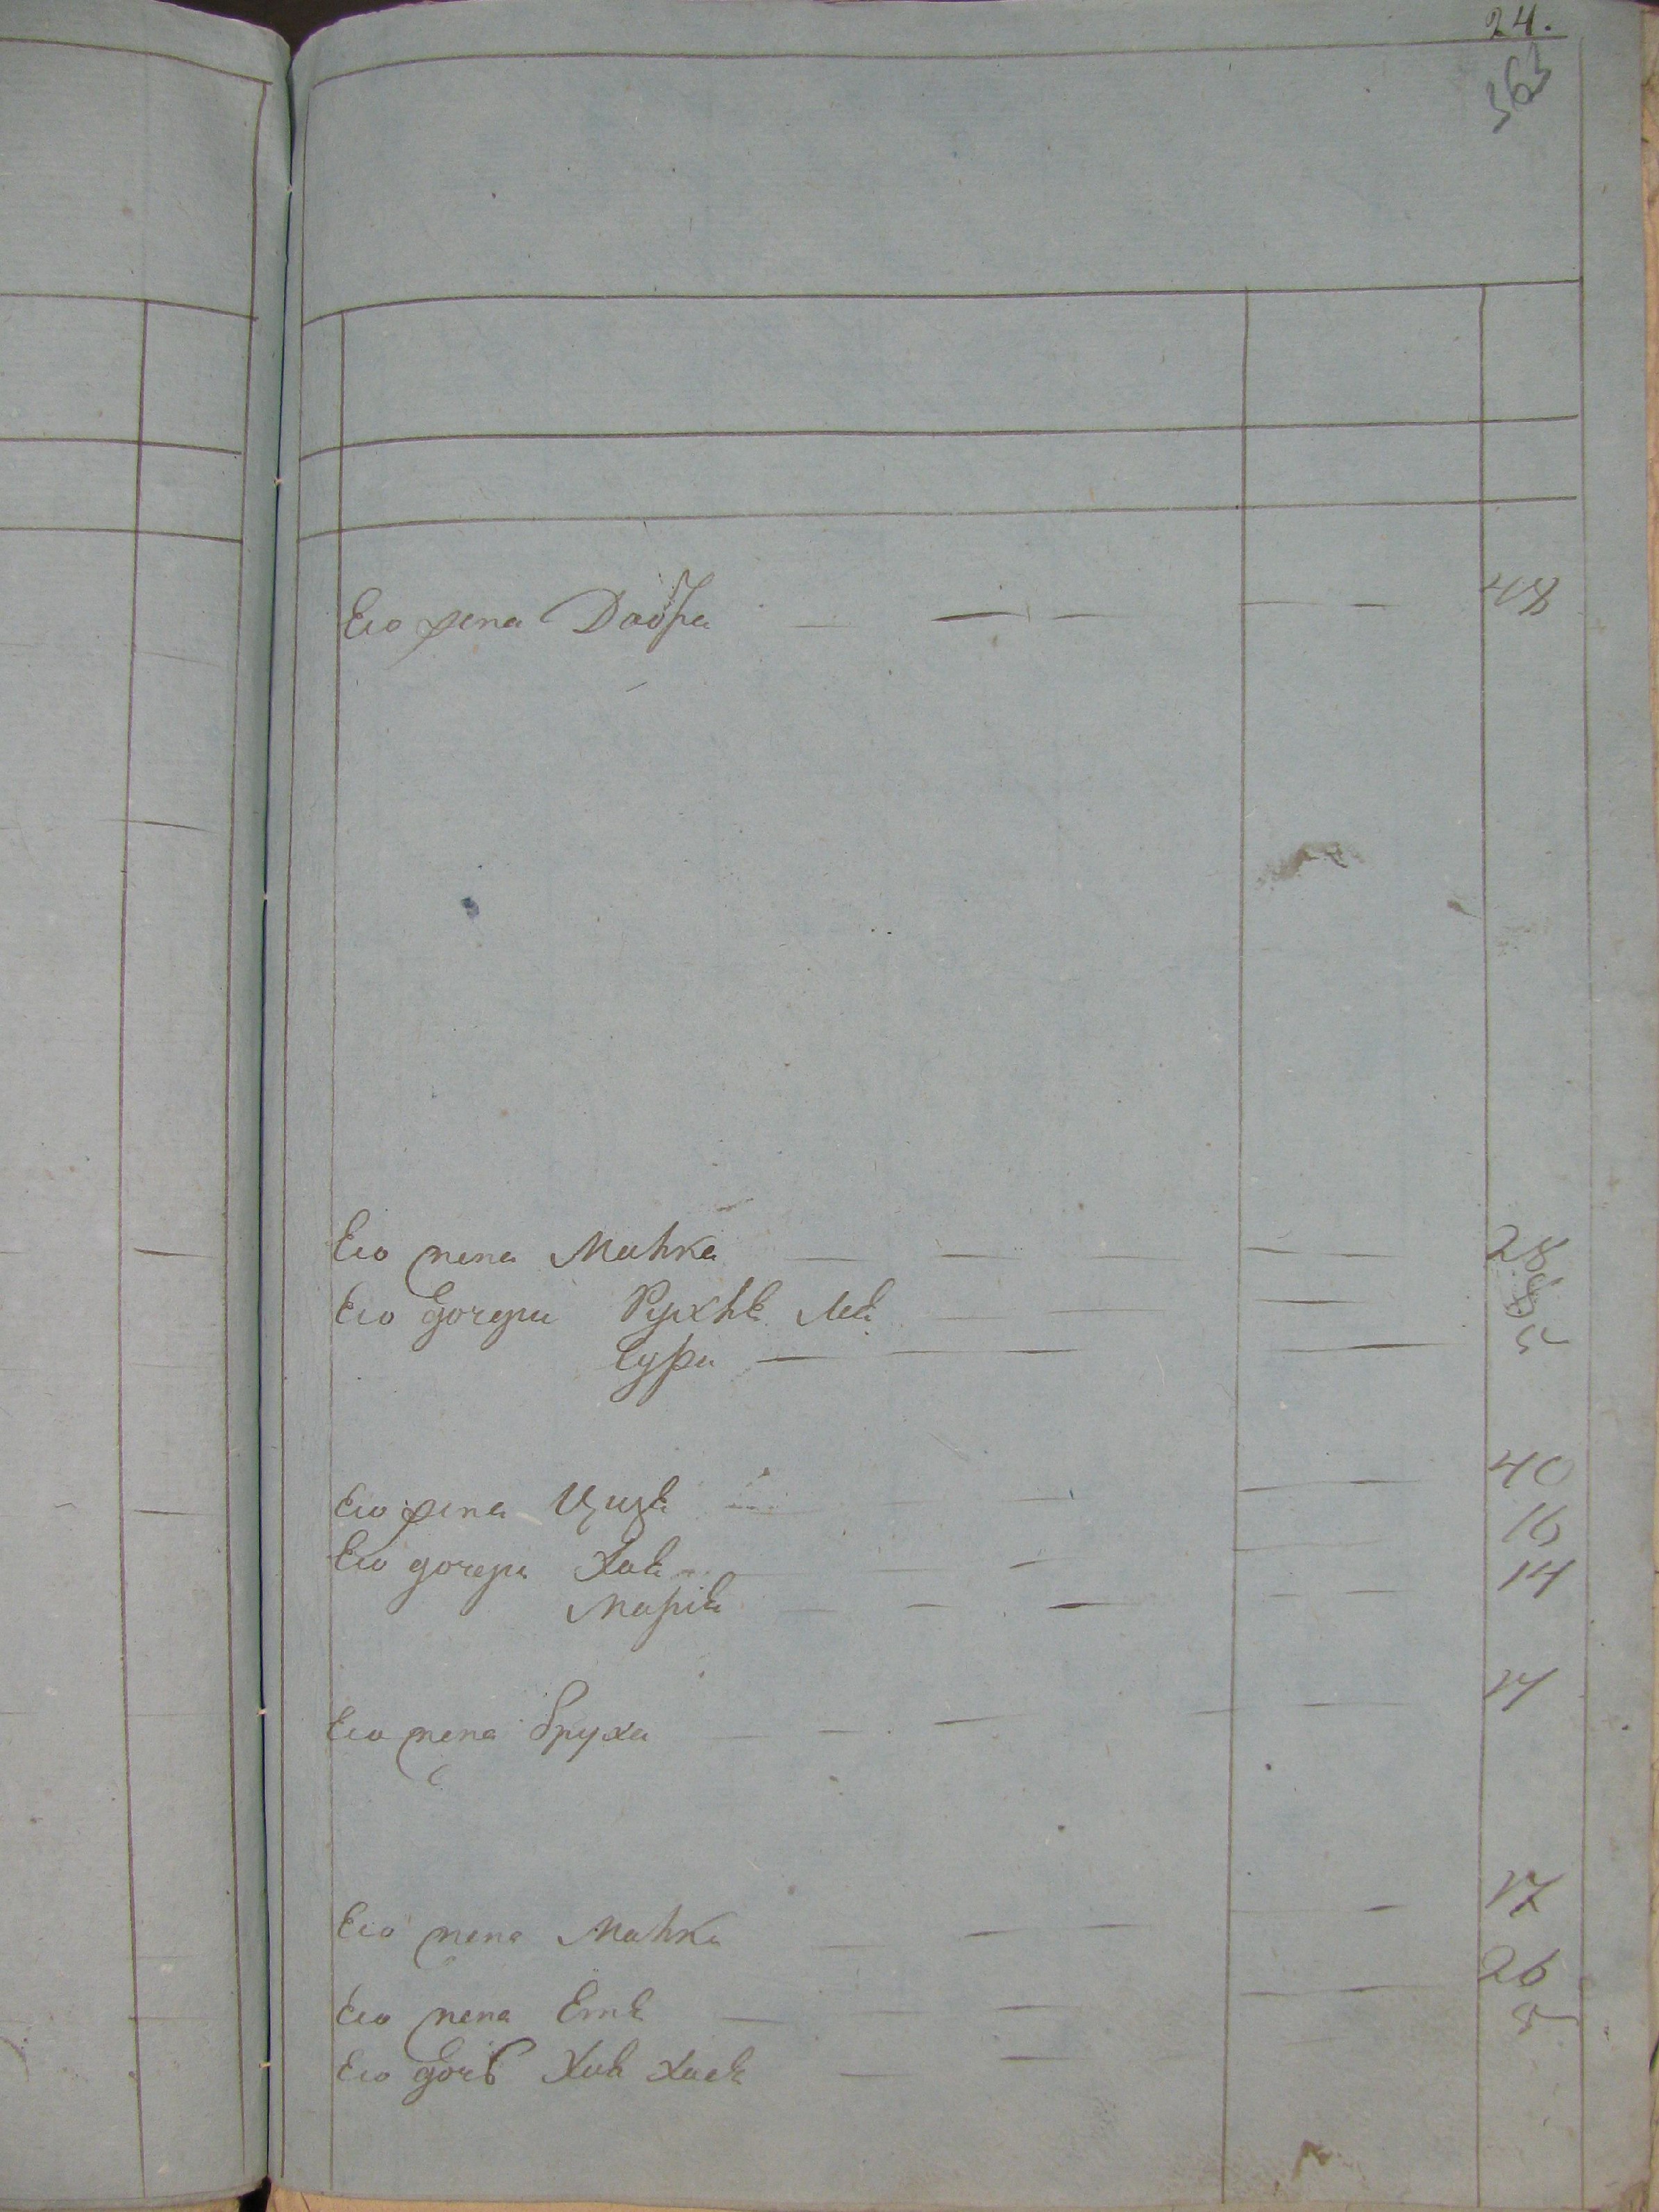 24.
363
Его жена Двойра 48
Его жена Малка 28
Его дочери Рухля Лея
Сура 5
Его жена Ципа 40
Его дочери Хая 16
Марія 14
Его жена Бруха
Его жена Малка 17
Его жена Етя 26
Его дочь Хая Хася 5